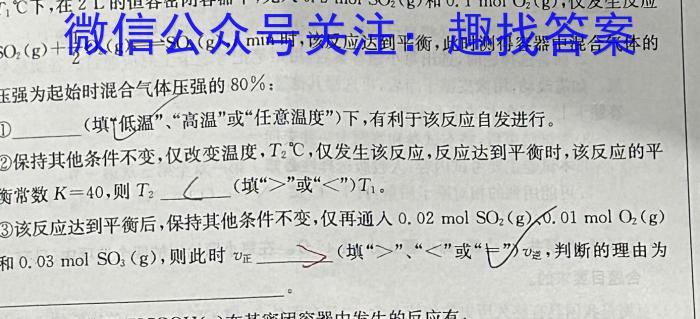 ℃下,在2 L的恒容密闭容器中
mol O₂(g),仅发生反应
微信公众号关注:趣找答案
SO₂(g)+ 1/2 O₂(g) SO₃(g), min时,该反应达到平衡,此时测得容器中混合气体的
压强为起始时混合气体压强的80%:
①______(填“低温”、“高温”或“任意温度”)下,有利于该反应自发进行。
②保持其他条件不变,仅改变温度,T₂℃,仅发生该反应,反应达到平衡时,该反应的平
衡常数K=40,则T₂ < (填“>”或“<”)T₁。
③该反应达到平衡后,保持其他条件不变,仅再通入0.02 mol SO₂(g)、0.01 mol O₂(g)
和0.03 mol SO₃(g),则此时v正 > (填“>”、“<”或“=”)v逆,判断的理由为
______。